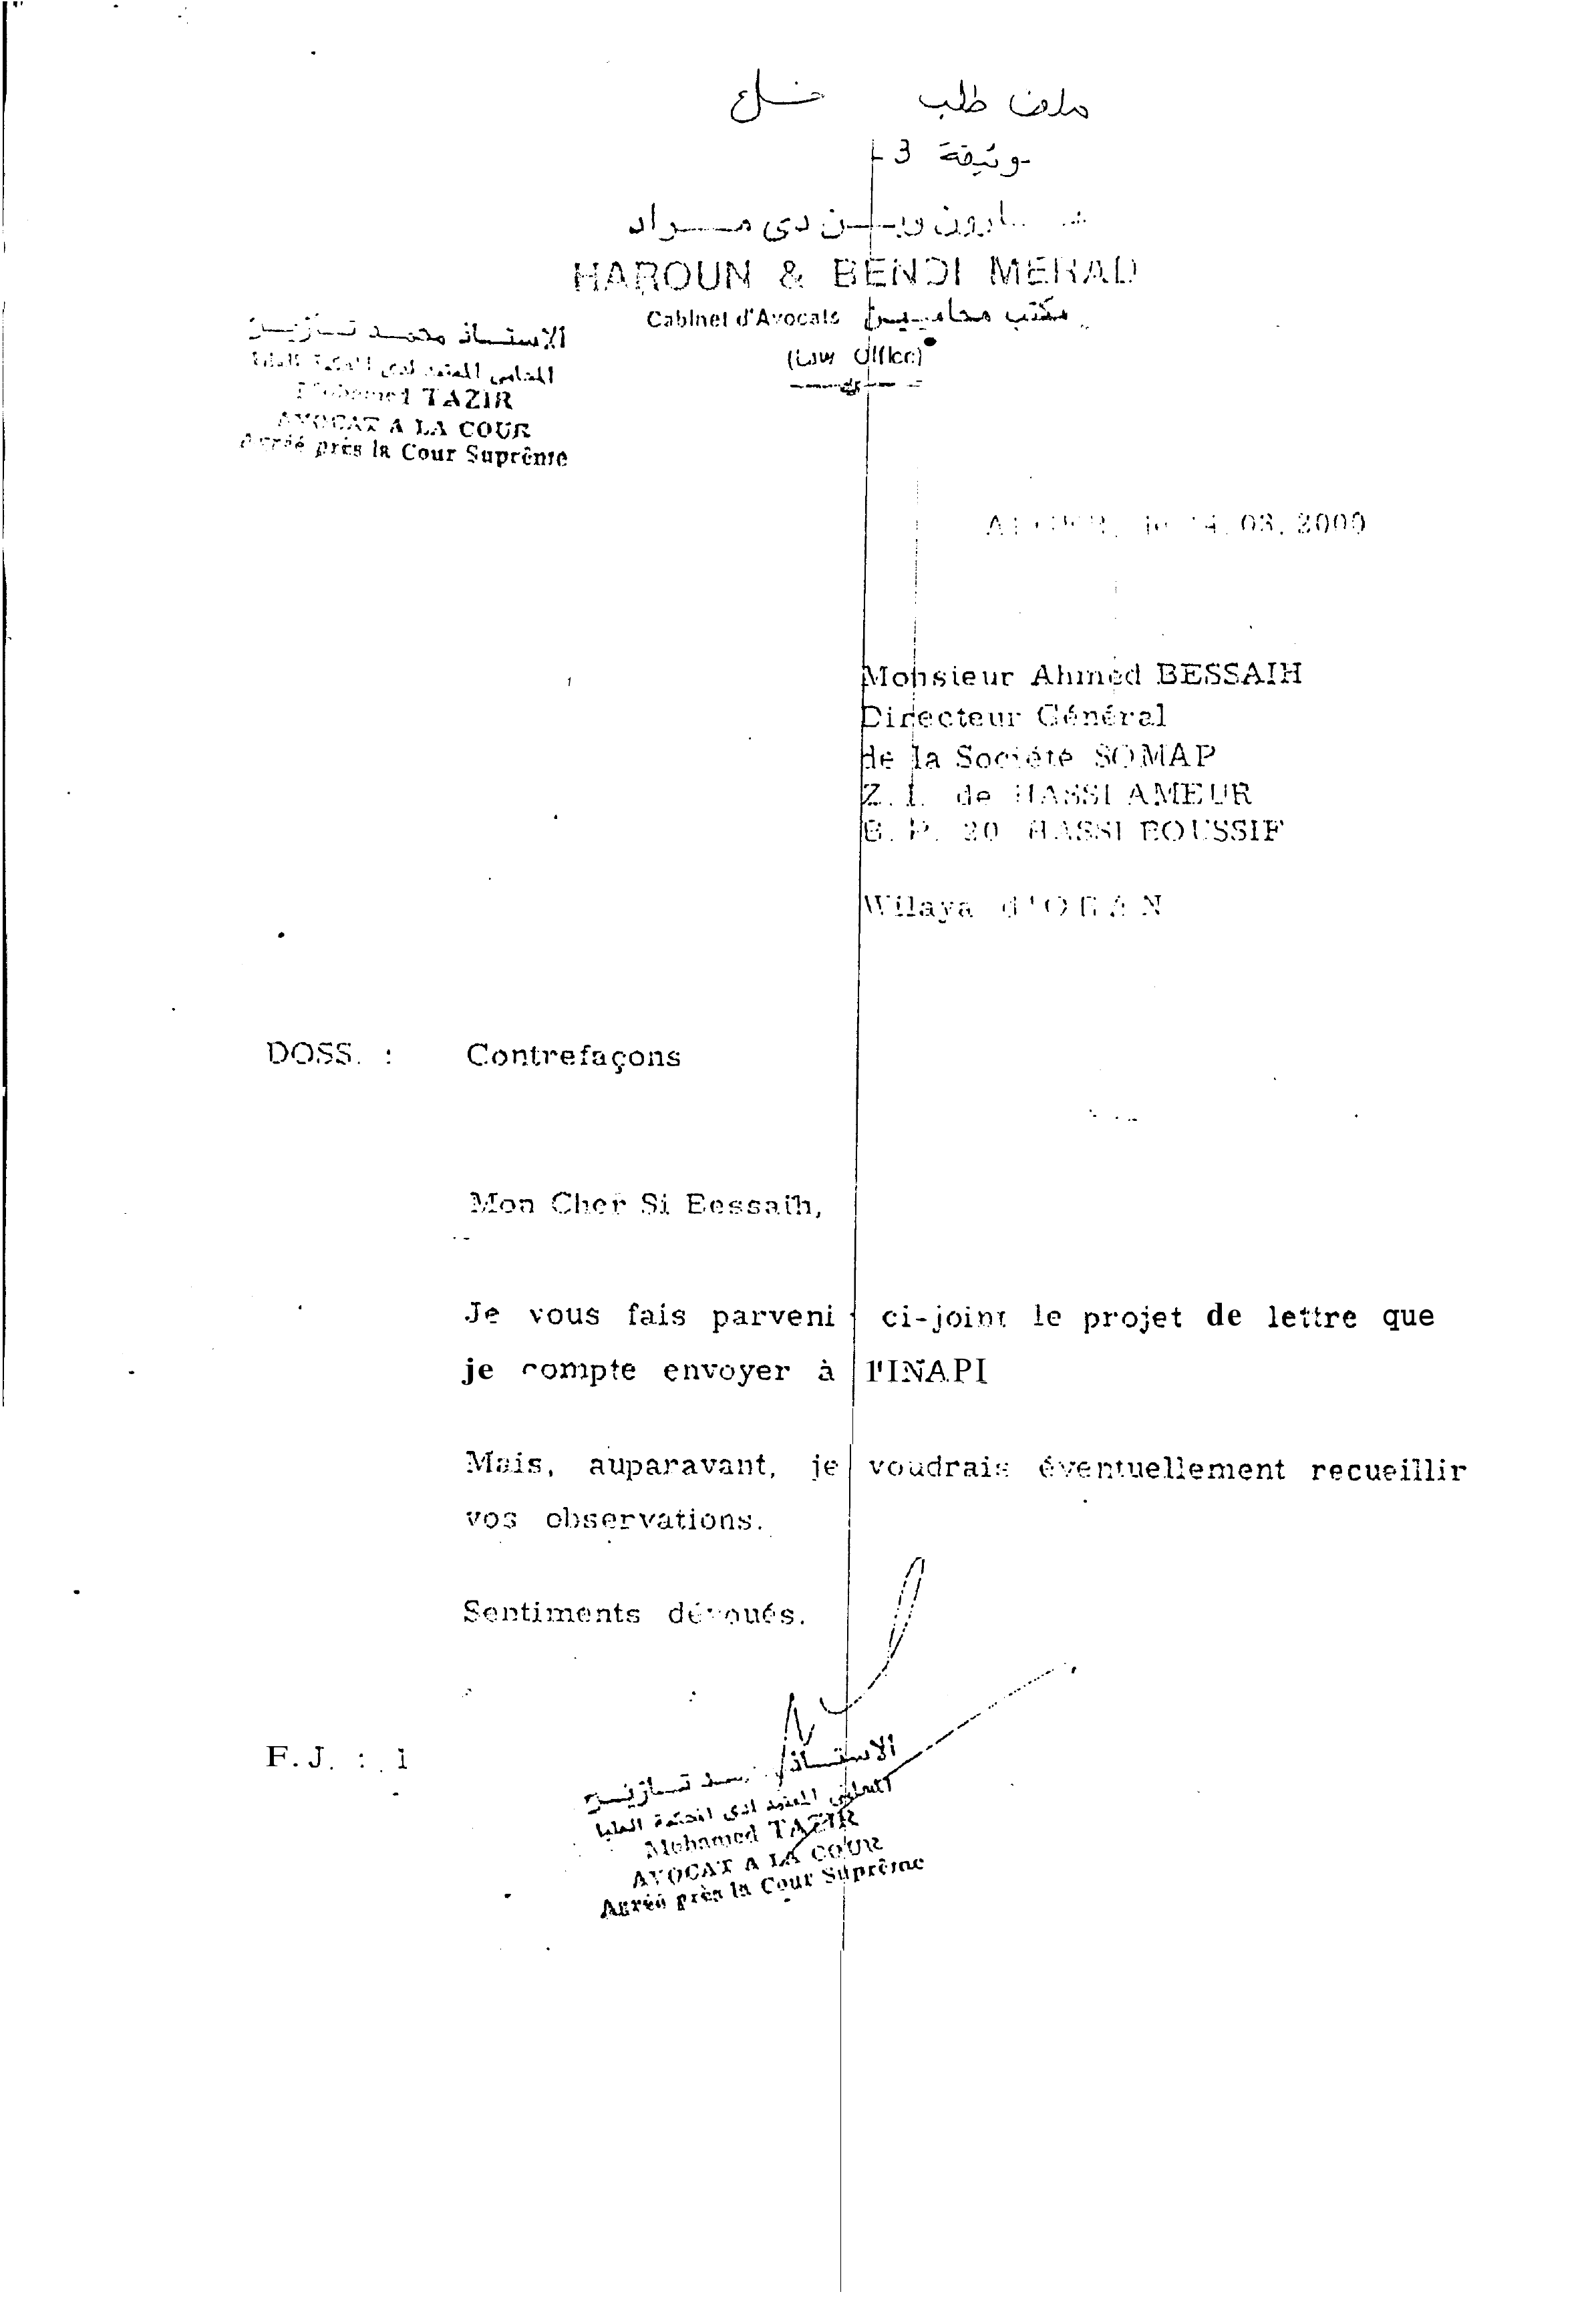 ملف طلب خلع
وثيقة 3
هارون وبن دى مراد
HAROUN & BENDI MERAD
Cabinet d'Avocats مكتب محاميين
(Law Office)
الاستاذ محمد تازير
المحامي المعتمد لدى المحكمة العليا
Mohamed TAZIR
AVOCAT A LA COUR
Agréé près la Cour Suprême
ALGER, le 14.03.2000
Monsieur Ahmed BESSAIH
Directeur Général
de la Société SOMAP
Z.I. de HASSI AMEUR
B.P. 20 HASSI BOUSSIF
Wilaya d'ORAN
DOSS. : Contrefaçons
Mon Cher Si Bessaih,
Je vous fais parvenir ci-joint le projet de lettre que
je compte envoyer à l'INAPI
Mais, auparavant, je voudrais éventuellement recueillir
vos observations.
Sentiments dévoués.
F.J. : 1
الاستاذ محمد تازير
المحامي المعتمد لدى المحكمة العليا
Mohamed TAZIR
AVOCAT A LA COUR
Agréé près la Cour Suprême